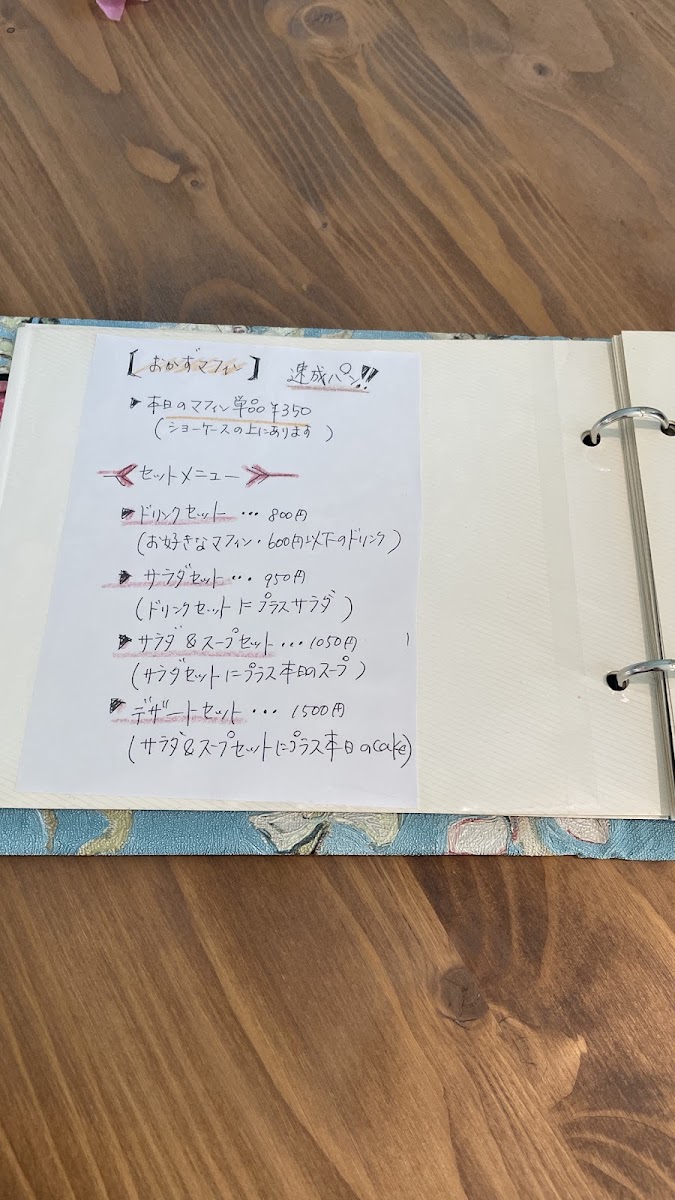 【おかずマフィン】 速成パン!!
▶本日のマフィン単品 ¥350
(ショーケースの上にあります)
セットメニュー
▶ドリンクセット・・・800円
(お好きなマフィン・600円以下のドリンク)
▶サラダセット・・・950円
(ドリンクセットにプラスサラダ)
▶サラダ&スープセット・・・1050円
(サラダセットにプラス本日のスープ)
▶デザートセット・・・1500円
(サラダ&スープセットにプラス本日のcake)